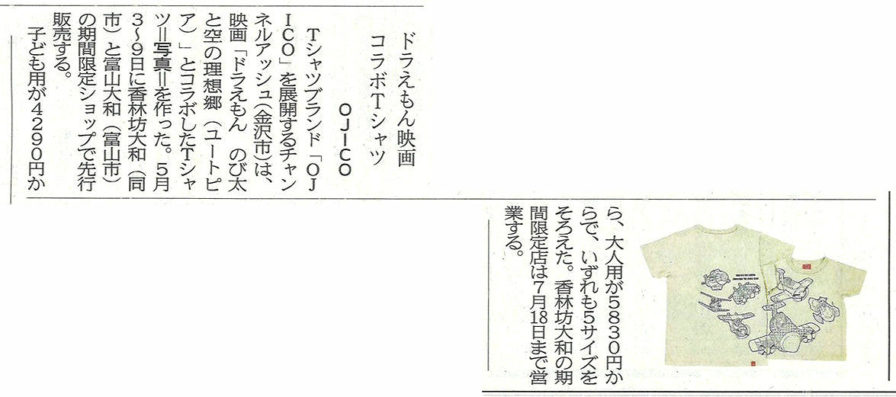 ドラえもん映画
コラボTシャツ
OJICO
Tシャツブランド「OJ
ICO」を展開するチャン
ネルアッシュ(金沢市)は、
映画「ドラえもん のび太
と空の理想郷(ユートピ
ア)」とコラボしたTシャ
ツ=写真=を作った。5月
3~9日に香林坊大和(同
市)と富山大和(富山市)
の期間限定ショップで先行
販売する。
子ども用が4290円か
ら、大人用が5830円か
らで、いずれも5サイズを
そろえた。香林坊大和の期
間限定店は7月18日まで営
業する。